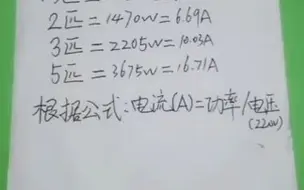 2匹=1470W=6.69A
3匹=2205W=10.03A
5匹=3675W=16.71A
根据公式:电流(A)=功率/电压
(220V)